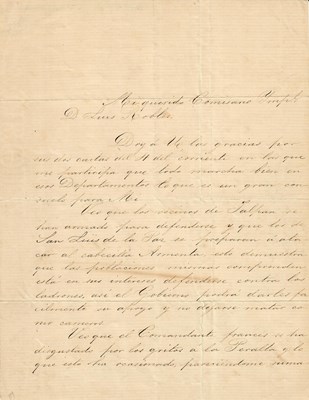 Mi querido Comisario Imp.l
D. Luis Robles
Doy á U. las gracias por
sus dos cartas del 11 del corriente en las que
me participa que todo marcha bien en
esos Departamentos lo que es un gran con
suelo para Mi.
Veo que los vecinos de Jalpan se
han armado para defenderse y que los de
San Luis de la Paz se preparan á ata
car al cabecilla Armenta, esto demuestra
que las poblaciones mismas comprenden
está en sus intereses defenderse contra los
ladrones, así el Gobierno podrá darles fa
cilmente su apoyo y no dejarse matar co
mo carneros.
Veo que el Comandante frances se ha
disgustado por los gritos á la Peralta y lo
que esto ha ocasionado, pareciendome suma